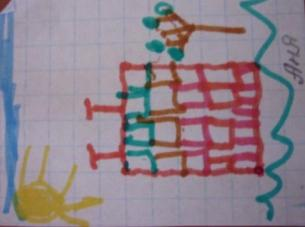 Аня